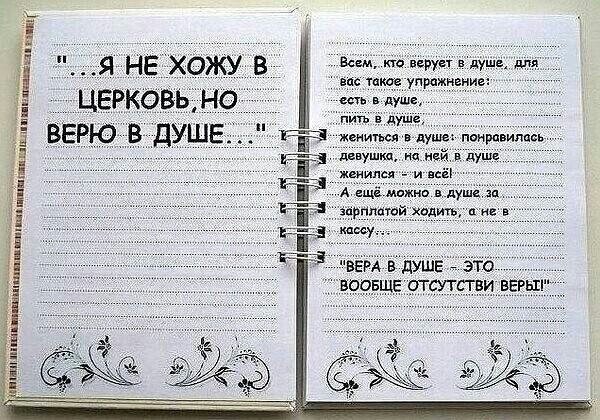 "...Я НЕ ХОЖУ В
ЦЕРКОВЬ,НО
ВЕРЮ В ДУШЕ..."
Всем, кто верует в душе, для
вас такое упражнение:
есть в душе,
пить в душе,
жениться в душе: понравилась
девушка, на ней в душе
женился - и всё!
А ещё можно в душе за
зарплатой ходить, а не в
кассу...
"ВЕРА В ДУШЕ - ЭТО
ВООБЩЕ ОТСУТСТВИ ВЕРЫ!"